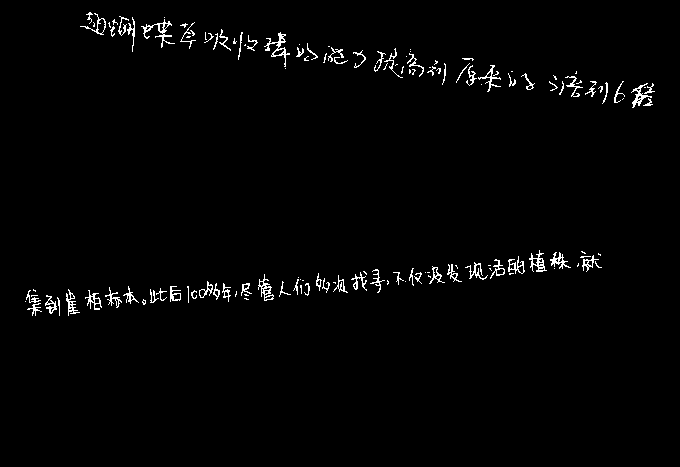 蝴蝶草吸收磷的能力提高到原来的3倍到6倍
集到崖柏标本。此后100多年,尽管人们多次找寻,不仅没发现活的植株,就